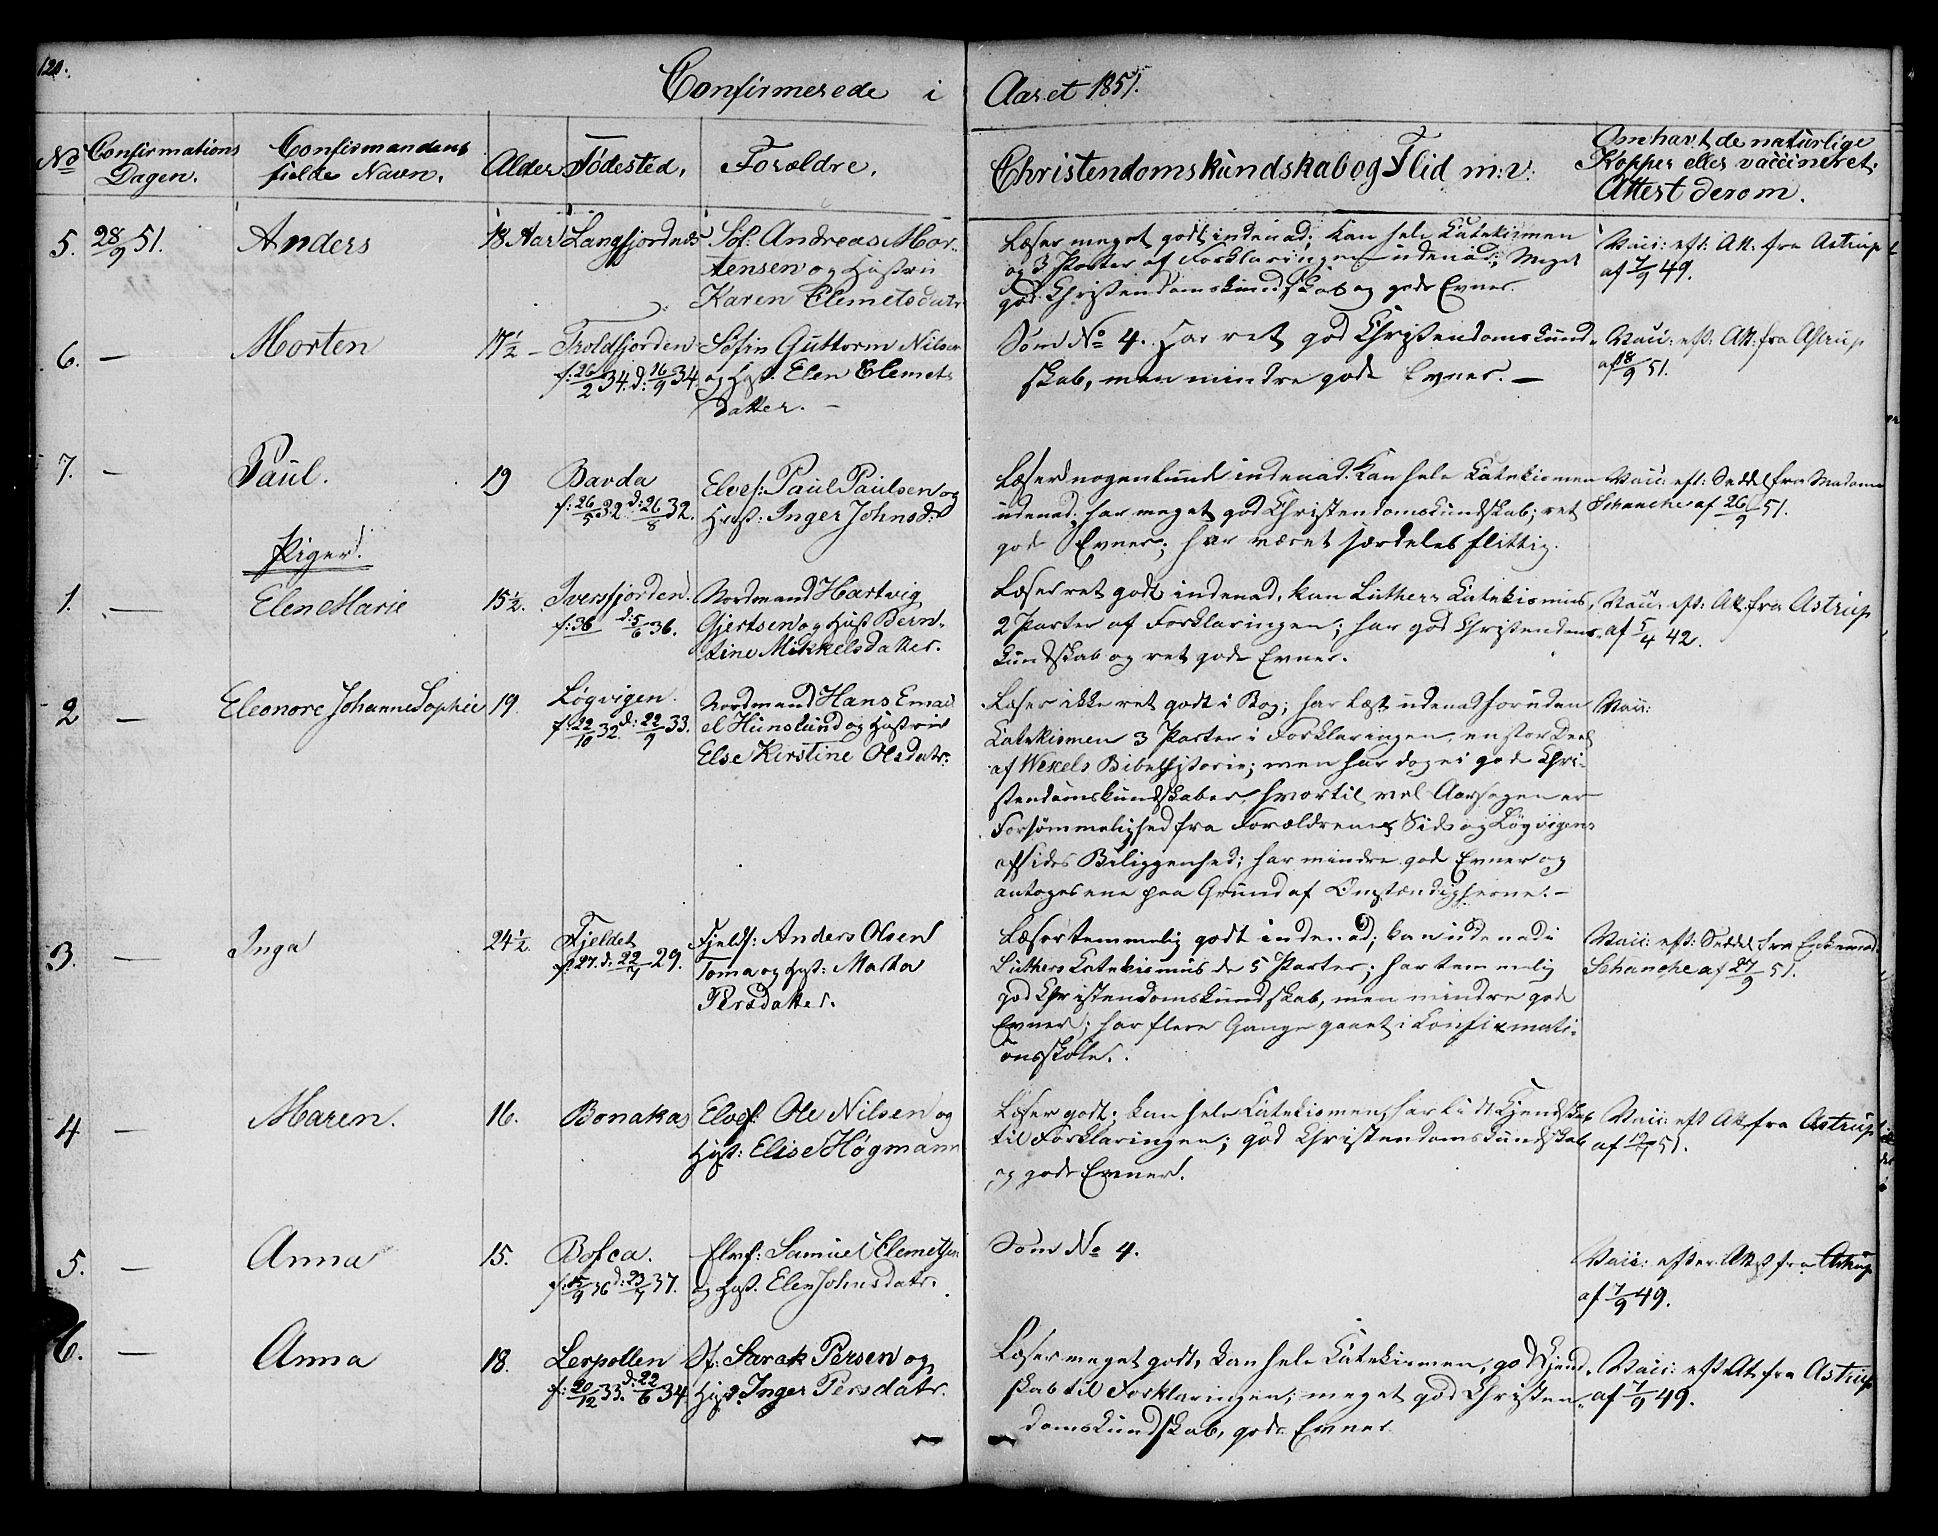 120.
Confirmerede i Aaret 1851.
No Confirmations Dagen. Confirmandens fulde Navn. Alder Fødested. Forældre. Christendomskundskab og Flid m: v: Om havt de naturlige Kopper eller vaccineret. Attest derom.
5. 28/9 51. Anders 18 Aar Langfjordnæs Søf: Andreas Mor-
tensen og Hustru
Karen Clemetsdatr
Læser meget godt indenad; kan hele Katekismen
og 3 Parter af Forklaringen udenad; Meget
god Christendomskundskab og gode Evner.
Vacc: eft: Att. fra Astrup
af 7/9 49.
6. — Morten 17 1/2 — Troldfjorden
f: 26/2 34. d: 16/9 34
Søfin Guttorm Nilsen
og Hust. Elen Clemets
datter. —
Som No 4. Har ret god Christendomskund-
skab, men mindre gode Evner. —
Vacc: eft: Att: fra Astrup
af 18/9 51.
7. — Paul. 19 Bavda
f: 26/5 32 d: 26/8 32.
Elvef: Paul Paulsen og
Hust: Inger Johnsd:
Læser nogenlunde indenad. Kan hele Katekismen
udenad; har meget god Christendomskundskab; ret
gode Evner; har været særdeles flittig.
Vacc: eft: Seddel fra Madame
Schanche af 26/9 51.
Piger.
1. — Elen Marie 15 1/2. Iversfjorden.
f: 36 d: 5/6 36.
Nordmand Hartvig
Gjertsen og Hust Bern-
tine Mikkelsdatter.
Læser ret godt indenad, kan Luthers Katekismus,
2 Parter af Forklaringen; har god Christendoms-
kundskab og ret gode Evner.
Vacc: eft: Att. fra Astrup
af 5/4 42.
2 — Eleonore Johanne Sophie 19. Løgvigen.
f: 22/10 32. d: 22/9 33.
Nordmand Hans Emai
el Hunslund og Hustru
Else Kirstine Olsdatr:
Læser ikke ret godt i Bog; har læst udenad foruden
Katekismen 3 Parter i Forklaringen, en stor Deel
af Wexels Bibelhistorie; men har dog ei gode Chri-
stendomskundskaber, hvortil vel Aarsagen er
Forsømmelighed fra Forældrenes Side og Løgvigens
afsides Beliggenhed; har mindre gode Evner og
antoges ene paa Grund af Omstændighederne. —
Vacc:
3. — Inga 24 1/2. Fjeldet
f: 27. d: 22/7 29.
Fjeldf: Anders Olsen
Toma og Hust: Marta
Persdatter.
Læser temmelig godt indenad; kan udenad i
Luthers Katekismus de 5 Parter; har temmelig
god Christendomskundskab, men mindre gode
Evner; har flere Gange gaaet i Confirmati-
onsskole.
Vacc: eft: Seddel fra Enkemad.
Schanche af 27/9 51.
4 — Maren. 16. Bonakas Elvef: Ole Nilsen og
Hust: Elise Høgmann
Læser godt; kan hele Katekismen, har lidt Kjendskab
til Forklaringen; god Christendomskundskab
og gode Evner.
Vacc: eft Att fra Astrup
af 19/7 51.
5. — Anna 15. Bofca.
f: 15/9 36 d: 23/7 37.
Elvf: Samuel Clemetsen
og Hust. Elen Johnsdatr.
Som No 4.
Vacc: efter Attst fra Astrup
af 7/9 49.
6. — Anna 18. Lerpollen
f: 20/12 33. d: 22/6 34
Sf: Sarak Persen og
Hust: Inger Persdatr.
Læser meget godt, kan hele Katekismen, god Kjend-
skab til Forklaringen; meget god Christen-
domskundskab, gode Evner.
Vacc: eft Att. fra Astrup
af 7/9 49.